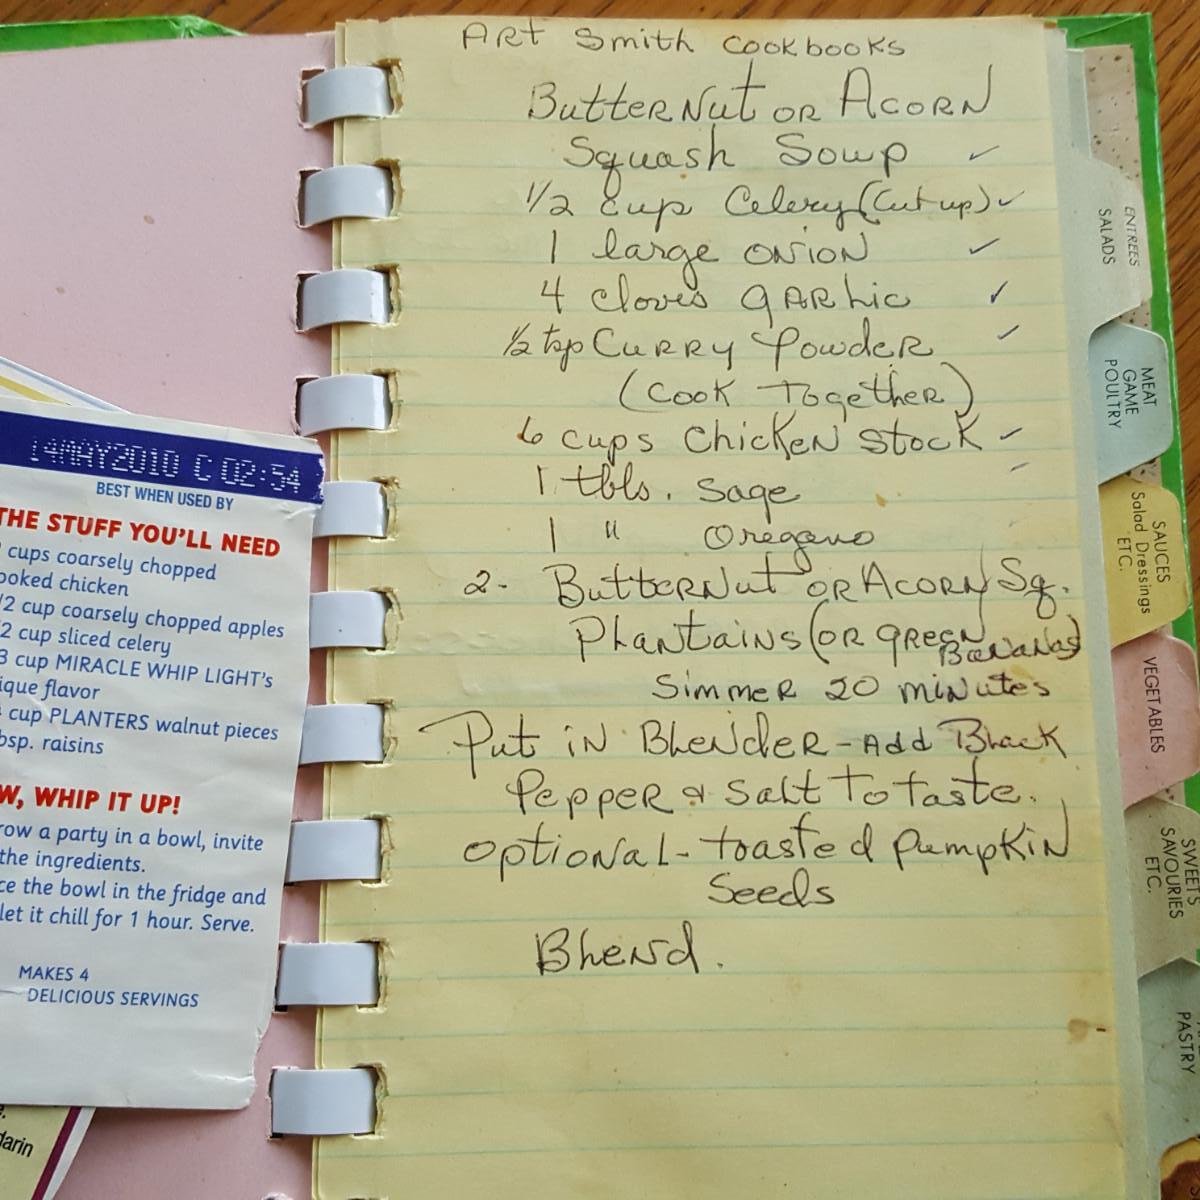 ART Smith Cookbooks
Butternut or Acorn
Squash Soup ✓
1/2 cup Celery (Cut up) ✓
1 large onion ✓
4 cloves garlic ✓
1/2 tsp Curry Powder ✓
(Cook Together)
6 cups Chicken Stock ✓
1 tbls. Sage
1 " Oregano
2- Butternut or Acorn Sq.
Plantains (or green
Bananas)
Simmer 20 minutes
Put in Blender - Add Black
Pepper & Salt to taste.
optional - toasted pumpkin
Seeds
Blend.
14MAY2010 C 02:54
BEST WHEN USED BY
THE STUFF YOU'LL NEED
cups coarsely chopped
ooked chicken
/2 cup coarsely chopped apples
2 cup sliced celery
3 cup MIRACLE WHIP LIGHT's
ique flavor
cup PLANTERS walnut pieces
bsp. raisins
W, WHIP IT UP!
row a party in a bowl, invite
the ingredients.
ce the bowl in the fridge and
let it chill for 1 hour. Serve.
MAKES 4
DELICIOUS SERVINGS
darin
ENTREES
SALADS
MEAT
GAME
POULTRY
SAUCES
Salad Dressings
ETC.
VEGETABLES
SWEETS
SAVOURIES
ETC.
PASTRY